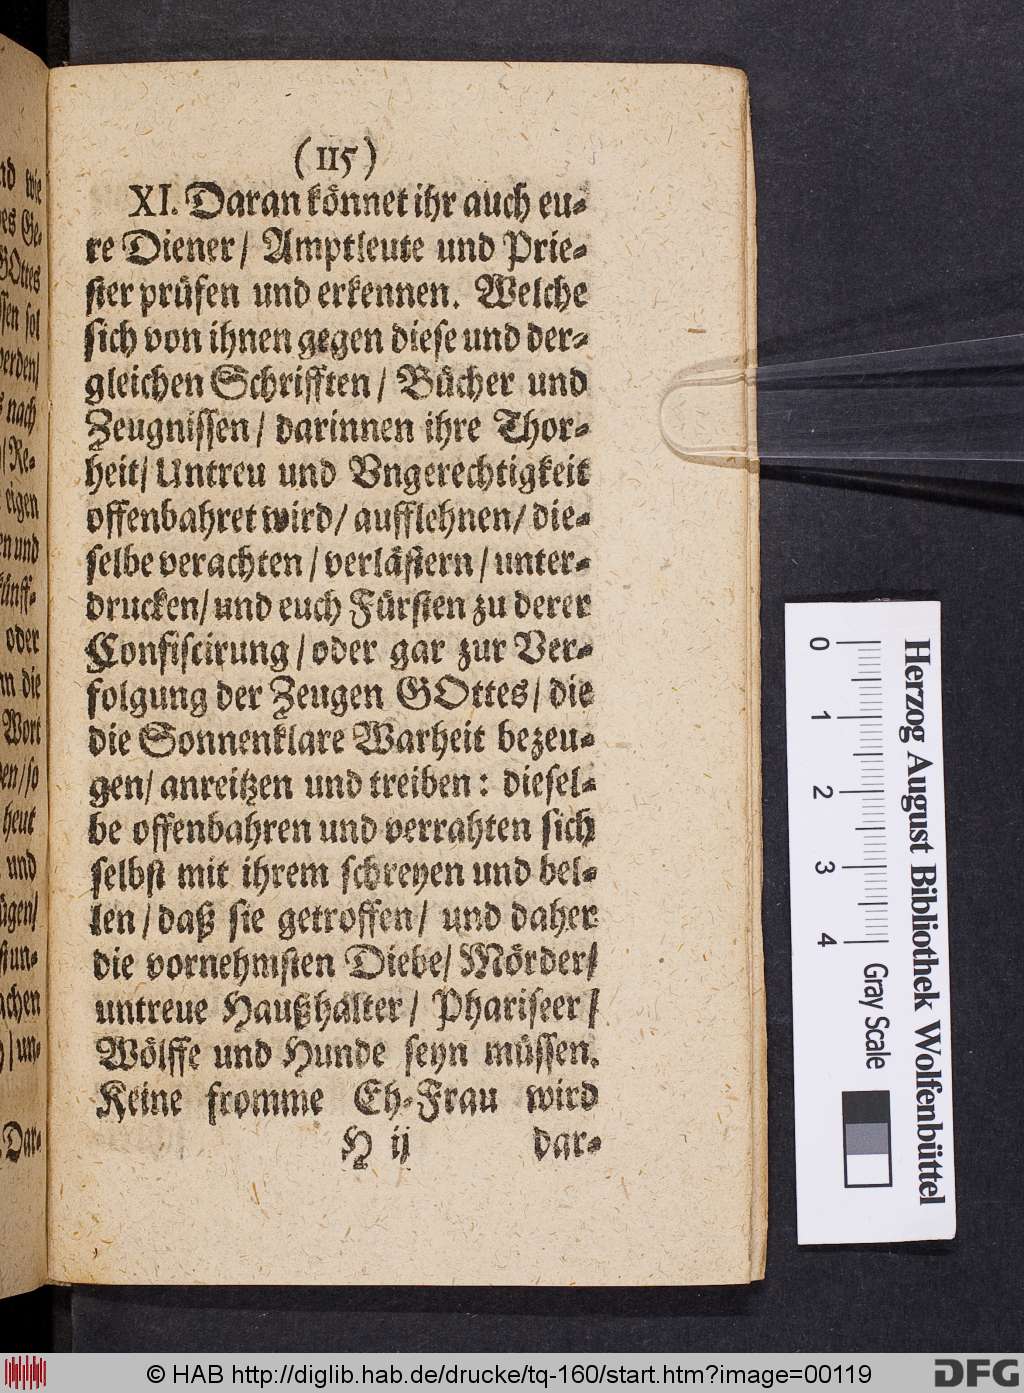 (115)
XI. Daran könnet ihr auch eu-
re Diener/ Amptleute und Prie-
ster prüfen und erkennen. Welche
sich von ihnen gegen diese und der-
gleichen Schrifften/ Bücher und
Zeugnissen/ darinnen ihre Thor-
heit/ Untreu und Vngerechtigkeit
offenbahret wird/ aufflehnen/ die-
selbe verachten/ verlästern/ unter-
drucken/ und euch Fürsten zu derer
Confiscirung/ oder gar zur Ver-
folgung der Zeugen GOttes/ die
die Sonnenklare Warheit bezeu-
gen/ anreitzen und treiben: diesel-
be offenbahren und verrahten sich
selbst mit ihrem schreyen und bel-
len/ daß sie getroffen/ und daher
die vornehmsten Diebe/ Mörder/
untreue Haußhälter/ Phariseer/
Wölffe und Hunde seyn müssen.
Keine fromme Eh-Frau wird
H ij dar-
wie
Ge-
GOttes
sol
werden/
nach
Re-
eigen
und
oder
die
Wort
so
heut
und
un-
Dar-
Herzog August Bibliothek Wolfenbüttel
0 1 2 3 4 Gray Scale
© HAB http://diglib.hab.de/drucke/tq-160/start.htm?image=00119
DFG